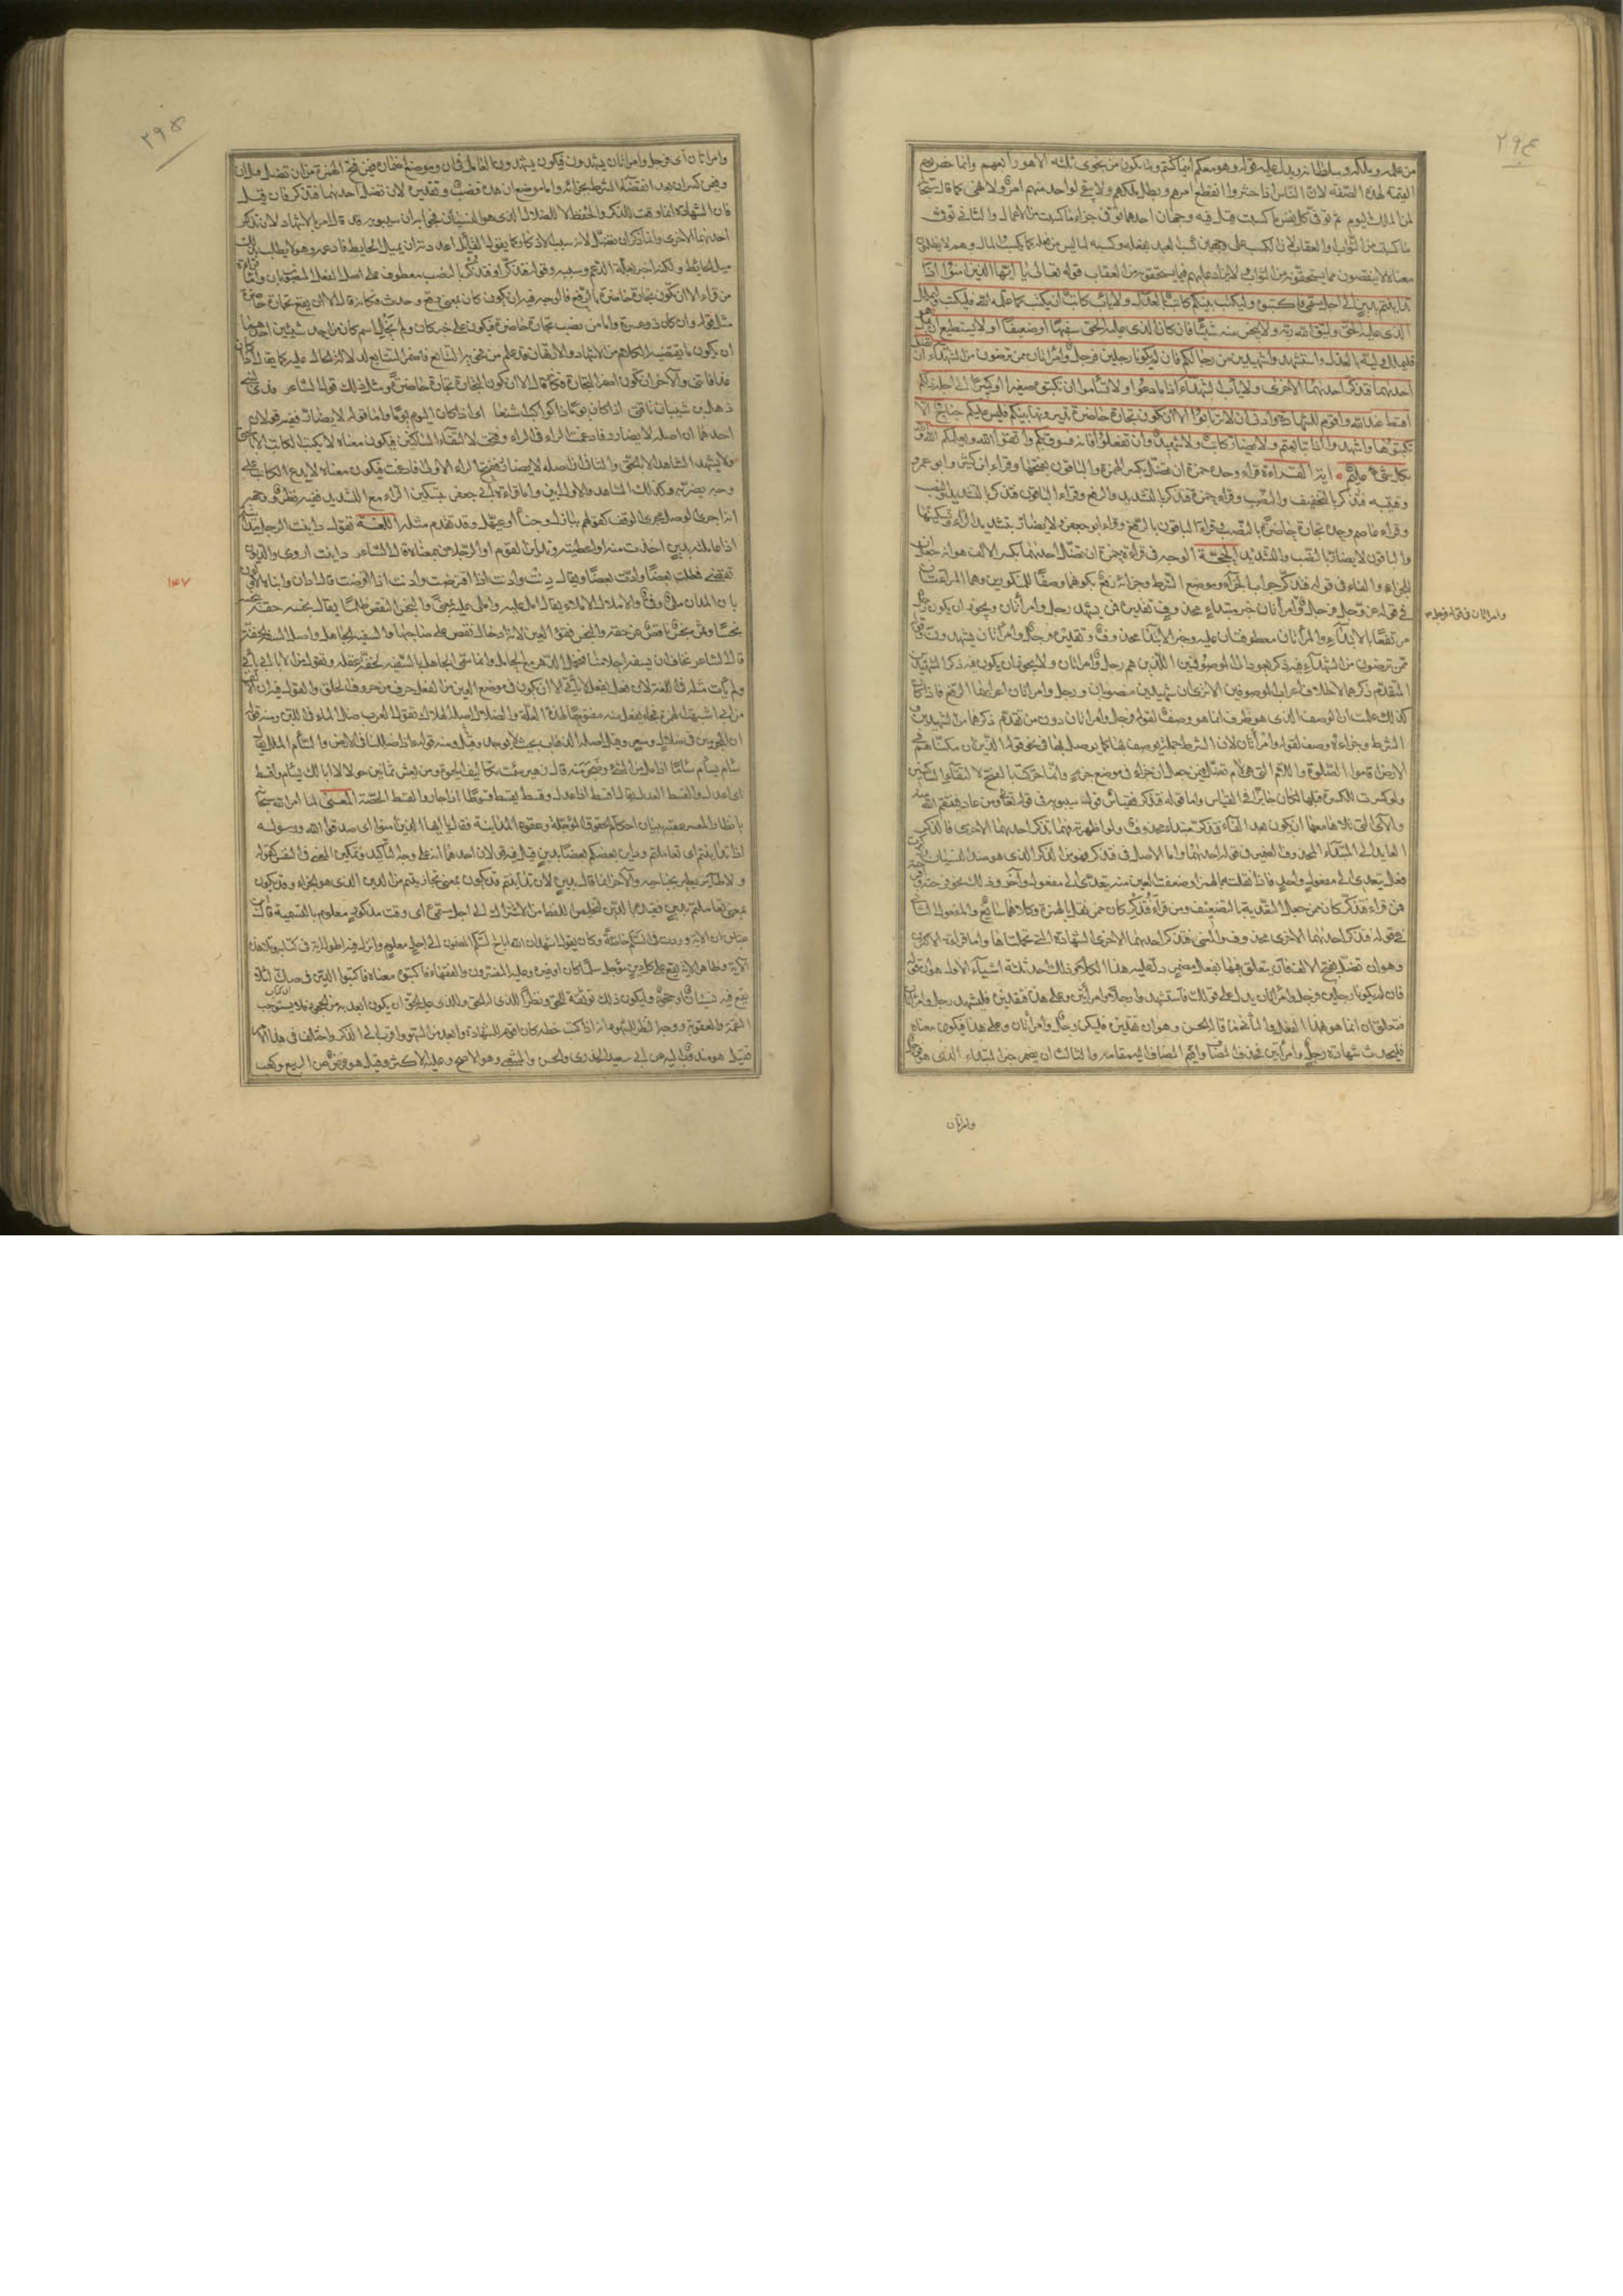 ٢٩٤
من علمه وملكه وسلطانه ويدل عليه قوله وهو معكم اينما كنتم وما يكون من نجوى ثلثة الا هو رابعهم وانما خص يوم
القيمة بهذه الصفة لان الناس اذا حشروا انقطع امرهم وبطل ملكهم ولا يبقى لواحد منهم امر ولا نهي كما قال سبحانه
لمن الملك اليوم ثم توفى كل نفس ما كسبت قيل فيه وجهان احدهما توفى جزاء ما كسبت من الاعمال والثاني توفى
ما كسبت من الثواب والعقاب لان الكسب على وجهين كسب العبد بفعله وكسبه لما ليس من فعله كما يكسب المال وهم لا يظلمون
معناه لا ينقصون مما يستحقونه من الثواب ولا يزاد عليهم فيما يستحقونه من العقاب قوله تعالى يا ايها الذين امنوا اذا
تداينتم بدين الى اجل مسمى فاكتبوه وليكتب بينكم كاتب بالعدل ولا ياب كاتب ان يكتب كما علمه الله فليكتب وليملل
الذي عليه الحق وليتق الله ربه ولا يبخس منه شيئا فان كان الذي عليه الحق سفيها او ضعيفا او لا يستطيع ان يمل هو
فليملل وليه بالعدل واستشهدوا شهيدين من رجالكم فان لم يكونا رجلين فرجل وامراتان ممن ترضون من الشهداء ان تضل
احديهما فتذكر احديهما الاخرى ولا ياب الشهداء اذا ما دعوا ولا تساموا ان تكتبوه صغيرا او كبيرا الى اجله ذلكم
اقسط عند الله واقوم للشهادة وادنى ان لا ترتابوا الا ان تكون تجارة حاضرة تديرونها بينكم فليس عليكم جناح الا
تكتبوها واشهدوا اذا تبايعتم ولا يضار كاتب ولا شهيد وان تفعلوا فانه فسوق بكم واتقوا الله ويعلمكم الله والله
بكل شيء عليم اية القراءة قراء وحده حمزة ان تضل بكسر الهمزة والباقون بفتحها وقراء ابن كثير وابو عمرو
وقتيبه فتذكر بالتخفيف والنصب وقراء حمزة فتذكر بالتشديد والرفع وقراء الباقون فتذكر بالتشديد والنصب
وقراء عاصم وحده تجارة حاضرة بالنصب وقراءة الباقون بالرفع وقراء ابو جعفر ولا يضار بتشديد الراء وتسكينها
والباقون لا يضار بالنصب والتشديد الحجة الوجه في قراءة حمزة ان تضل احديهما بكسر الالف هو انه جعل ان
للجزاء والفاء في قوله فتذكر جواب الجزاء وموضع الشرط وجزائه رفع بكونهما وصفا للمنكورين وهما المراتان
في قوله عز وجل فرجل وامراتان خبر مبتداء محذوف تقديره فمن يشهد رجل وامراتان ويجوز ان يكون رجل
وامراتان في قوله فرجل
مرتفعا بالابتداء والمراتان معطوفتان عليه وخبر الابتداء محذوف وتقديره فرجل وامراتان يشهدون وقوله
ممن ترضون من الشهداء فيه ذكر يعود الى الموصوفين الذين هم رجل وامراتان ولا يجوز ان يكون فيه ذكر الشهيدين
المتقدم ذكرهما لاختلاف اعراب الموصوفين الا ترى ان شهيدين منصوبان ورجل وامراتان اعرابهما الرفع فاذا كان
كذلك علمت ان الوصف الذي هو ظرف انما هو وصف لقوله فرجل وامراتان دون من تقدم ذكرهما من الشهيدين و
الشرط وجزاءه وصف لقوله وامراتان لان الشرط جملة يوصف بها كما يوصل بها في نحو قوله الذين ان مكناهم في
الارض اقاموا الصلوة واللام التي هي لام تضل فيمن جعل ان جزاء في موضع جزم وانما حركت بالفتح لالتقاء الساكنين
ولو كسرت للكسرة قبلها لكان جايزا في القياس واما قوله فتذكر فقياس قول سيبويه في قوله تعالى ومن عاد فينتقم الله منه
والآي التي تلاها معها ان يكون بعد الفاء فتذكر مبتداء محذوف ولو اظهرته فهما تذكر احديهما الاخرى فالذكر
العايد الى المبتداء المحذوف الضمير في قوله احديهما واما الاصل في فتذكر فهو من الذكر الذي هو ضد النسيان وذكرت
فعل يتعدى الى مفعول واحد فاذا نقلته بالهمز او ضعفت العين منه يتعدى الى مفعول اخر وذلك نحو فرحته وافرحته
فمن قراء فتذكر كان ممن جعل التعدية بالتضعيف ومن قراء فتذكر كان ممن نقل بالهمزة وكلاهما سايغ والمفعول الثاني
في قوله فتذكر احديهما الاخرى محذوف والمعنى فتذكر احديهما الاخرى الشهادة التي تحملتاها واما قراءة الاكثرين
وهو ان تضل بفتح الالف فان يتعلق فيها بفعل مضمر دل عليه هذا الكلام وذلك احد ثلثة اشياء الاول هو ان قوله
فان لم يكونا رجلين فرجل وامراتان يدل على قولك فاستشهدوا رجلا وامراتين وعلى هذا فتقديره فليشهد رجل وامراتان
فتعلق ان انما هو بهذا الفعل والثاني ما قاله ابو الحسن وهو ان تقديره فليكن رجل وامراتان وعلى هذا فيكون معناه
فليحدث شهادة رجل وامراتين فحذف المضاف واقيم المضاف اليه مقامه والثالث ان يضمر خبر المبتداء الذي هو فرجل
وامراتان
٢٩٥
وامراتان اي فرجل وامراتان يشهدون فيكون يشهدون العامل في ان وموضع اضماره فيمن فتح الهمزة من ان تضل قبل ان
وفيمن كسر ان بعد انقضاء الشرط بجزائه واما موضع ان هذه فنصب وتقديره لان تضل احديهما فتذكر فان قيل
فان الشهادة انما وقعت للذكر والحفظ لا للضلال الذي هو النسيان فجوابه ان سيبويه قد قال امر بالاشهاد لان تذكر
احديهما الاخرى وانما ذكر ان تضل لانه سبب الاذكار كما يقول القائل اعددته ان يميل الحايط فادعمه وهو لا يطلب بذلك
ميل الحايط ولكنه اخبر بعلة الدعم وسببه وقوله فتذكر او فتذكر بالنصب معطوف على اصل الفعل المنصوب بان واما قراءة
من قراء الا ان تكون تجارة حاضرة بالرفع فالوجه فيه ان يكون كان بمعنى وقع وحدث فكانه قال الا ان يقع تجارة حاضرة
مثل قوله وان كان ذو عسرة واما من نصب تجارة حاضرة فيكون على خبر كان ولم يخل اسم كان من احد شيئين احدهما
ان يكون ما يقتضيه الكلام من الاشهاد والارتفاق قد علم من فحواه التبايع فاضمر التبايع لدلالة الحال عليه كما يقال اذا كان
غدا فأتني والاخر ان تكون اضمر التجارة فكانه قال الا ان تكون التجارة تجارة حاضرة ومثل ذلك قول الشاعر فدى لبني
ذهل بن شيبان ناقتي اذا كان يوما ذا كواكب اشنعا اي اذا كان اليوم يوما واما قوله لا يضار ففيه قولان
احدهما ان اصله لا يضارر فادغمت الراء في الراء وفتحت لالتقاء الساكنين فيكون معناه لا يكتب الكاتب الا بالحق
ولا يشهد الشاهد الا بالحق والثاني ان اصله لا يضارر بفتح الراء الاولى فادغمت فيكون معناه لا يدع الكاتب على
وجه يضر به وكذلك الشاهد والاول ابين واما قراءة ابي جعفر بتسكين الراء مع التشديد ففيه نظر ووجهه
انه اجرى الوصل مجرى الوقف كقولهم ببازل وجناء او عيهل وقد تقدم مثله اللغة تقول داينت الرجل مداينة
اذا عاملته بدين اخذت منه او اعطيته وتداين القوم او الرجلان بمعناه قال الشاعر داينت اروى والديون
تقضى فمطلت بعضا وادت بعضا ويقال دنت وادنت اذا اقترضت وادنت اذا اقرضت قال ادان وانباه الاولون
بان المدان ملي وفي والاملال الاملاء يقال امل عليه واملى عليه بمعنى والبخس النقص ظلما يقال بخسه حقه يبخسه
١٤٧
بخسا وثمن بخس ناقص عن حقه والبخس فقؤ العين لانه ادخال نقص على صاحبها والسفيه الجاهل واصل السفه الخفة
قال الشاعر نخاف ان يسفه احلامنا فنخمل الدهر مع الخامل وانما سمي الجاهل بالسفيه لخفة عقله وتقول من الاباء ابى يابى
ولم يات مثله في اللغة لان فعل يفعل لا ياتي الا ان يكون في موضع العين من الفعل او اللام حرف من حروف الحلق والقول فيه ان الالف
من ابى اشبهت الهمزة فجاء يفعل منه مفتوحا لهذه العلة والضلال اصله الهلاك تقول العرب ضل الماء في اللبن ومنه قوله
ان المجرمين في ضلال وسعر وقيل اصله الذهاب بحيث لا يوجد وقيل ومنه قوله ءاذا ضللنا في الارض والسأم الملال يقال
سئم يسام سأما اذا مل من الشيء وضجر منه قال زهير سئمت تكاليف الحيوة ومن يعش ثمانين حولا لا ابالك يسام واقسط
اي اعدل والقسط العدل يقال اقسط اذا عدل وقسط يقسط قسوطا اذا جار والقسط الحصة المعنى لما امر الله سبحانه
بانظار المعسر عقبه ببيان احكام الحقوق المؤجلة وعقود المداينة فقال يا ايها الذين امنوا اي صدقوا الله ورسوله
اذا تداينتم اي تعاملتم وداين بعضكم بعضا بدين قيل فيه قولان احدهما انه على وجه التاكيد وتمكين المعنى في النفس كقوله
ولا طائر يطير بجناحيه والاخر انما قال بدين لان تداينتم قد يكون بمعنى تجازيتم من الدين الذي هو الجزاء وقد يكون
بمعنى تعاملتم بدين فقيده بالدين لتخليص اللفظ من الاشتراك الى اجل مسمى اي وقت مذكور معلوم بالتسمية قال ابن
عباس ان الاية وردت في السلم خاصة وكان يقول اشهد ان الله اباح السلم المضمون الى اجل معلوم وانزل فيه اطول اية في كتابه وتلا هذه
الاية وظاهر الاية يقع على كل دين مؤجل سلما كان او غيره وعليه المفسرون والفقهاء فاكتبوه معناه فاكتبوا الدين في صك لئلا
يقع فيه نسيان او جحود وليكون ذلك توثقة للحق ونظرا للذي له الحق وللذي عليه الحق